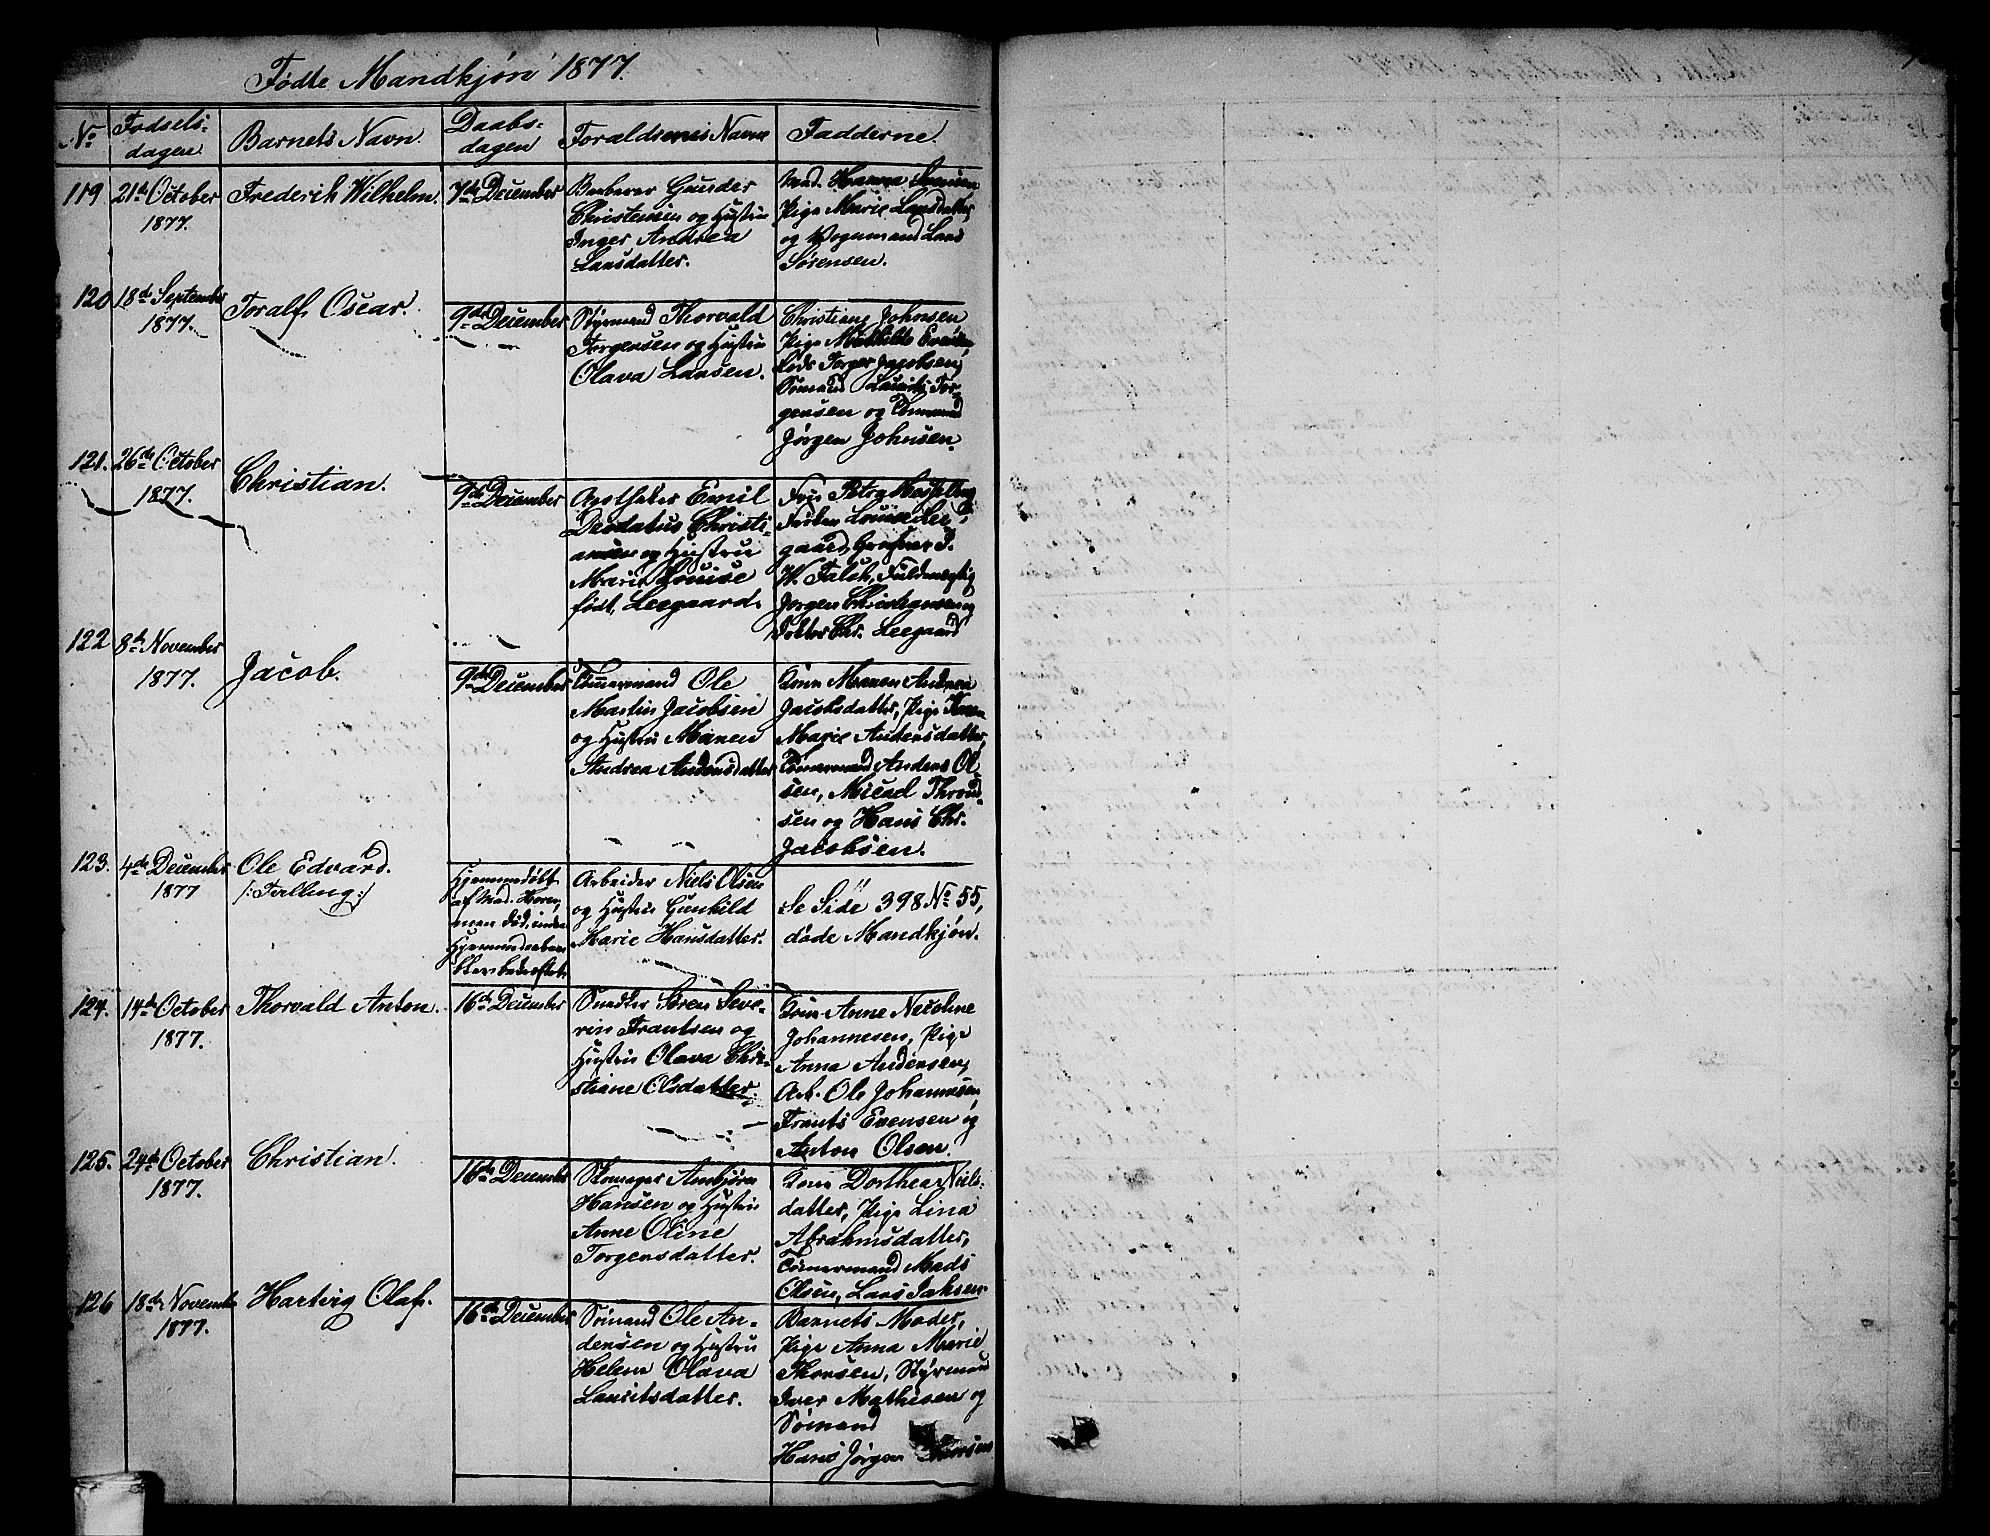 Fødte Mandkjøn 1877.
No
Fødsels-
dagen.
Barnets Navn.
Daabs-
dagen
Forældrenes Navne
Fadderne.
119
21de October
1877.
Frederik Wilhelm.
7de December
Gunder
Christensen og Hustru
Inger Andrea
Larsdatter.
Mad. Hanna
Pige Marie Larsdatter,
og Vognmand Lars
Sørensen.
120
18de September
1877.
Toralf Oscar.
9de December
Styrmand Thorvald
Torgersen og Hustru
Olava Larsen.
Christiane Johnsen
Pige Mathilde
Torger Jacobsen,
Sømand Lauritz Tor-
gersen og Tømmermd
Jørgen Johnsen.
121.
26de October
1877.
Christian.
9de December
Apotheker Emil
Deodatus Christi-
ansen og Hustru
Marie Louise
født Leegaard.
Frue Petra
Frøken Louise Lee-
gaard,
W. Falck, Fuldmægtig
Jørgen Christiansen og
Doktor Chr. Leegaard
122
8de November
1877.
Jacob.
9de December
Tømmermand Ole
Martin Jacobsen
og Hustru Maren
Andrea Andersdatter
Kone Maren Andrea
Jacobsdatter, Pige
Marie Andersdatter,
Tømermand Anders Ol-
sen, Micael Thrond-
sen og Hans Chr.
Jacobsen.
123.
4de December
1877
Ole Edvard.
/:Tvilling:/
Hjemmedøbt
af Mad. Horn,
men død, inden
Hjemmedaaben
blev bekræftet.
Arbeider Niels Olsen
og Hustru Gunhild
Marie Hansdatter.
Se Side 398 No 55,
døde Mandkjøn.
124.
14de October
1877.
Thorvald Anton.
16de December
Snedker Søren Seve-
rin Frantsen og
Hustru Olava Chri-
stiane Olsdatter.
Kone Anne Nicoline
Johannesen, Pige
Anna Andersen,
Arb. Ole Johannesen,
Frants Evensen og
Anton Olsen.
125.
24de October
1877.
Christian.
16de December
Skomager Arnbjørn
Hansen og Hustru
Anne Oline
Torgersdatter.
Kone Dorthea Niels-
datter, Pige Lina
Abrahmsdatter,
Tømermand Mads
Olsen, Lars
126
18de November
1877.
Hartvig Olaf.
16de December
Sømand Ole An-
dersen og Hustru
Helene Olava
Lauritsdatter.
Barnets Moder,
Pige Anna Marie
Thorsen, Styrmand
Iver Mathisen og
Sømand
Hans Jørgen